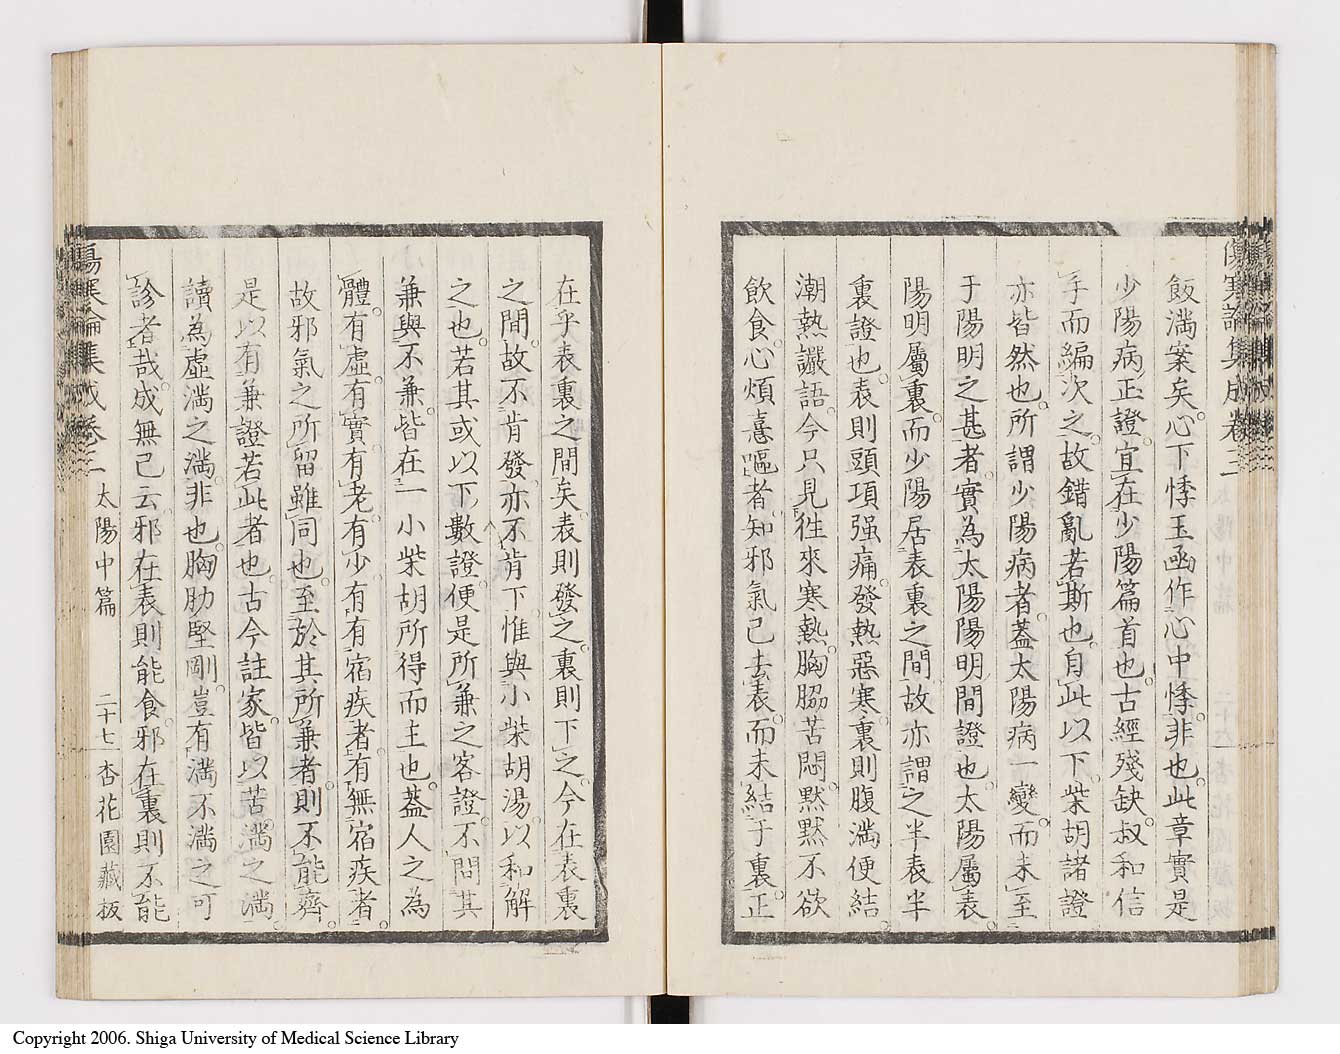 飯滿案矣心下悸玉函作心中悸非也此章實是
少陽病正證宜在少陽篇首也古經殘缺叔和信
手而編次之故錯亂若斯也自此以下柴胡諸證
亦皆然也所謂少陽病者蓋太陽病一變而未至
于陽明之甚者實為太陽陽明間證也太陽屬表
陽明屬裏而少陽居表裏之間故亦謂之半表半
裏證也表則頭項强痛發熱惡寒裏則腹滿便結
潮熱讝語今只見徃來寒熱胸脇苦悶默默不欲
飲食心煩憙嘔者知邪氣已去表而未結于裏正
傷寒論集成卷三
在乎表裏之間矣表則發之裏則下之今在表裏
之間故不肯發亦不肯下惟與小柴胡湯以和解
之也若其或以下數證便是所兼之客證不問其
兼與不兼皆在一小柴胡所得而主也蓋人之為
體有虛有實有老有少有有宿疾者有無宿疾者
故邪氣之所留雖同也至於其所兼者則不能齊
是以有兼證若此者也古今註家皆以苦滿之滿
讀為虛滿之滿非也胸肋堅剛豈有滿不滿之可
診者哉成無己云邪在表則能食邪在裏則不能
傷寒論集成卷三 太陽中篇 二十七 杏花園藏板
Copyright 2006. Shiga University of Medical Science Library